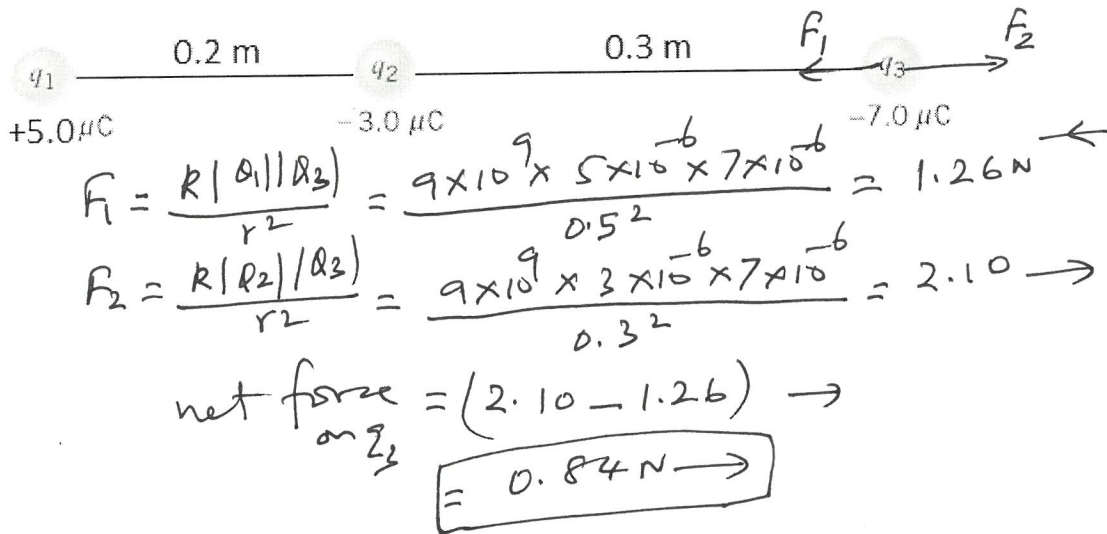 0.2 m 0.3 m F₁ F₂
q1 q2 q3
+5.0μC -3.0 μC -7.0 μC
F₁ = k|Q₁||Q₃| / r² = 9×10⁹ × 5×10⁻⁶ × 7×10⁻⁶ / 0.5² = 1.26N ←
F₂ = k|Q₂||Q₃| / r² = 9×10⁹ × 3×10⁻⁶ × 7×10⁻⁶ / 0.3² = 2.10 →
net force = (2.10 - 1.26) →
on q₃
= 0.84 N →